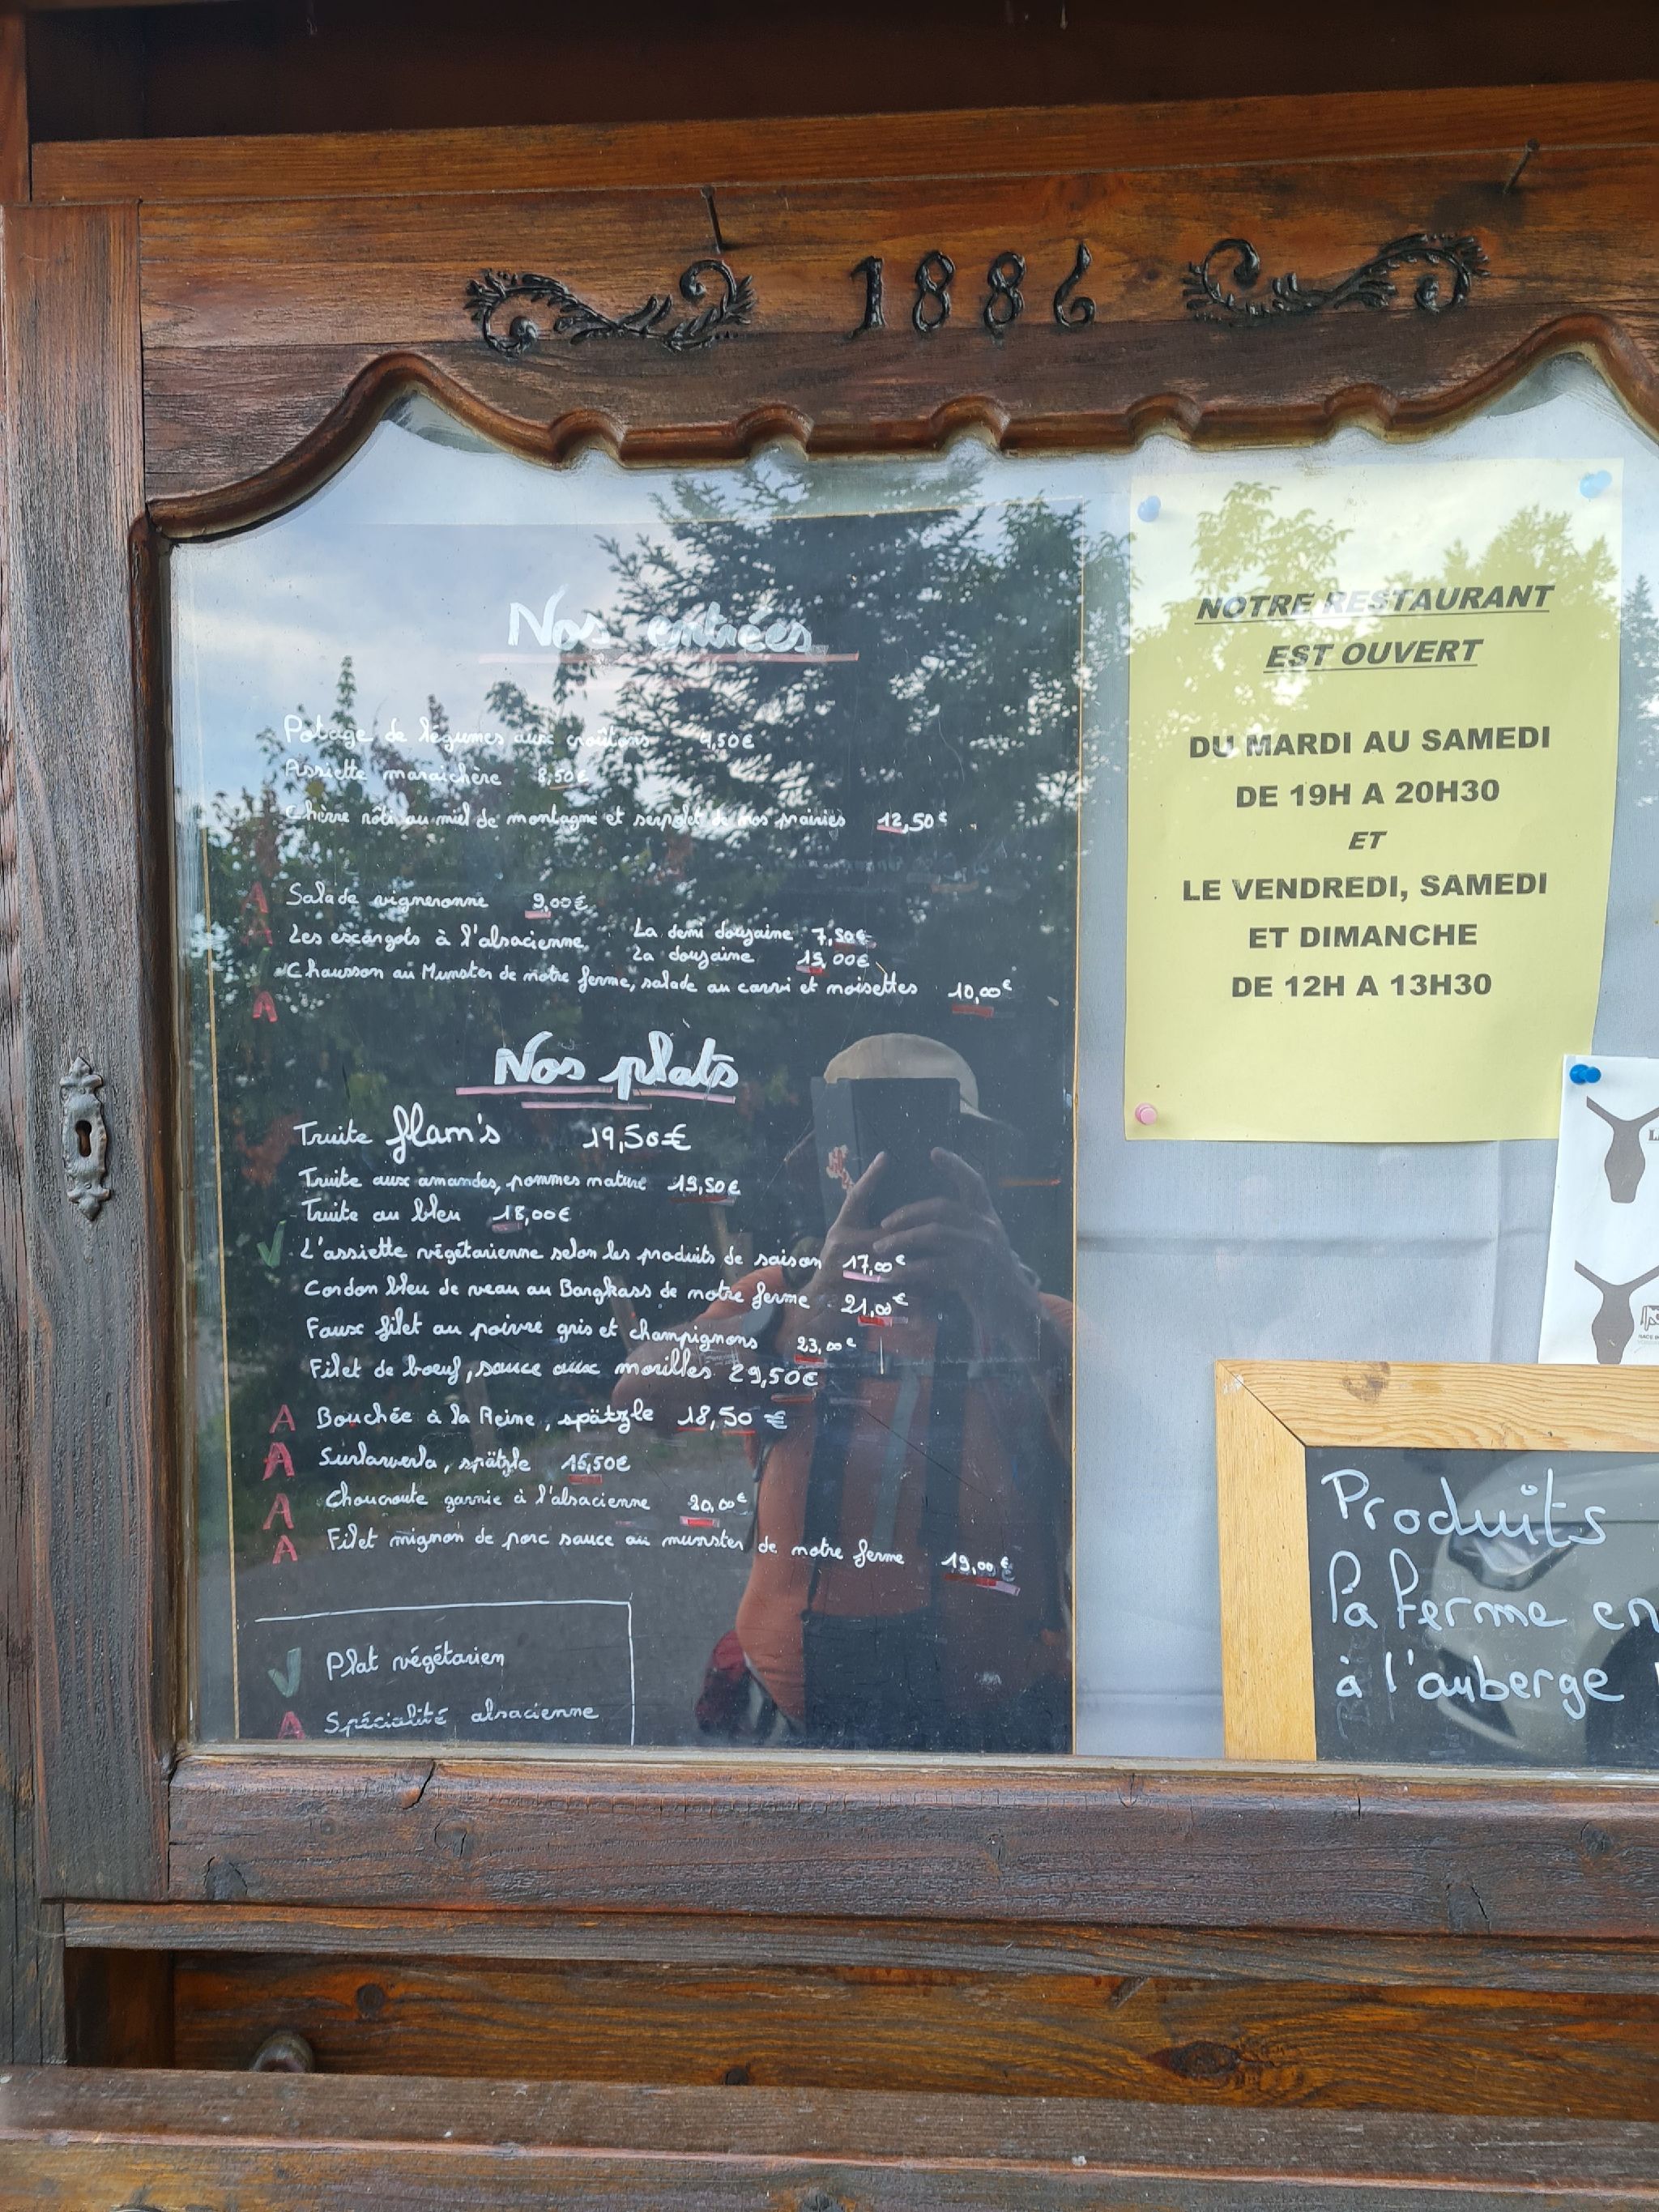 1886
Nos entrées
Potage de légumes aux croûtons 4,50€
Assiette maraîchère 8,50€
Chèvre rôti au miel de montagne et serpolet de nos prairies 12,50€
A Salade vigneronne 9,00€
A Les escargots à l'alsacienne La demi douzaine 7,50€
La douzaine 15,00€
A Chausson au Munster de notre ferme, salade au carvi et noisettes 10,00€
Nos plats
Truite flam's 19,50€
Truite aux amandes, pommes nature 19,50€
Truite au bleu 18,00€
V L'assiette végétarienne selon les produits de saison 17,00€
Cordon bleu de veau au Bargkass de notre ferme 21,00€
Faux filet au poivre gris et champignons 23,00€
Filet de boeuf, sauce aux morilles 29,50€
A Bouchée à la Reine, spätzle 18,50€
A Surlawerla, spätzle 16,50€
A Choucroute garnie à l'alsacienne 20,00€
A Filet mignon de porc sauce au munster de notre ferme 19,00€
V Plat végétarien
A Spécialité alsacienne
NOTRE RESTAURANT
EST OUVERT
DU MARDI AU SAMEDI
DE 19H A 20H30
ET
LE VENDREDI, SAMEDI
ET DIMANCHE
DE 12H A 13H30
Produits
la ferme en
à l'auberge